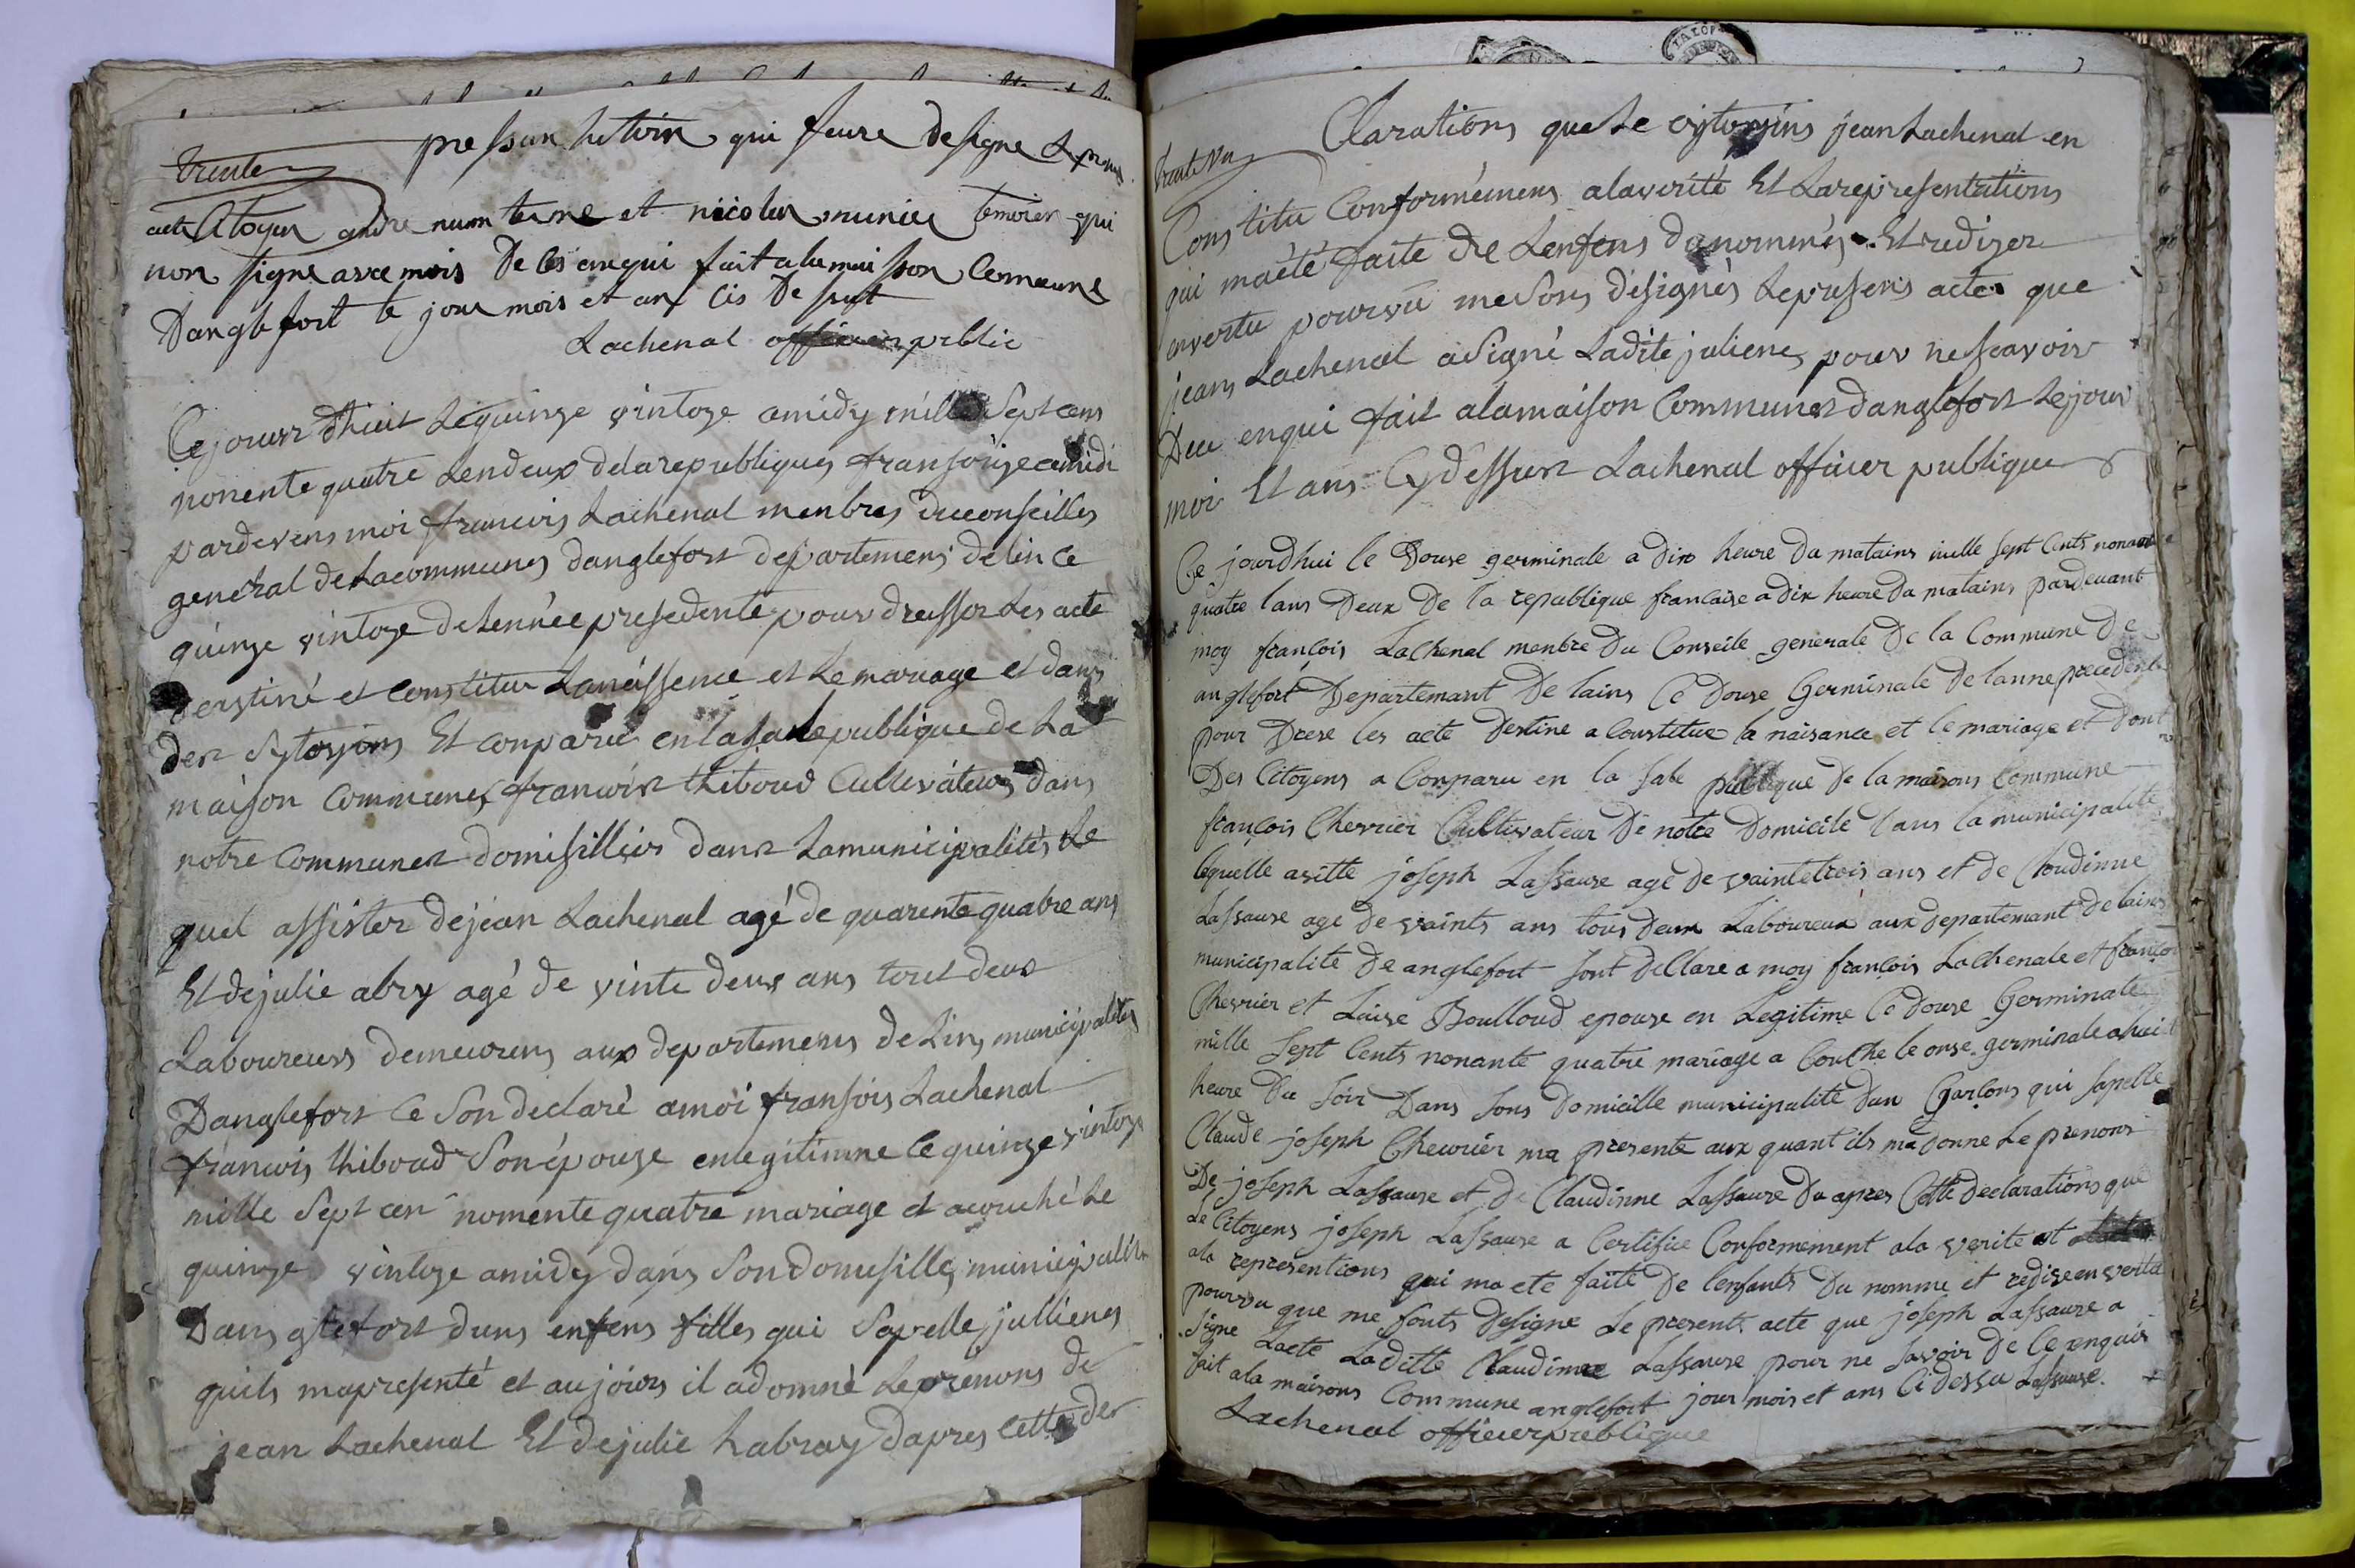 trente
qui feure designe Le
acte Citoyen andre et nicolas munier temoien qui
non signe avce mois De ces enqui fait a la maisson Comeune
Danglefort le jour mois et an Cis De sut
Lachenal officier public
Ce jourr dhuit Le quinze vintoze amidy mille Sept cens
nonente quatre Lendeux delarepubliques fransoize amidi
pardevens moi francois Lachenal menbres duconseilles
general deLacommunes danglefort departemens delin ce
quinze vintoze deLennée presedente pour dresser Les acte
destiné et constituer Lanéissence et Le mariage et dans
der Sytoyins Et conparu enlasale publique de La
maison Communes francoir thiboud Cullivateurs dans
notre Communer domisillier danr Lamunicipalités Le
quel assister dejean Lachenal agé de quarente quatre ans
Et dejulie abry agé de vinte deux ans tout deux
Laboureurs demeurens aux departemens de Lin, municipalités
Danglefort Ce Son declaré amoi fransois Lachenal
francois thiboud Son épouze enlegitimne le quinze vintoze
mille Sept cen nomente quatre mariage et acouché Le
quinze vintoze amidy dans Son domesilles municipalité
Dans glefort duns enfens filles qui Sapelle jullienes
quils mapresenté et aujoiors il adomné Leprenons de
jean Lachenal Et dejulie Labray dapres cette der
trente un
Clarations que Le jean Lachenal en
Constitu Conformémens alaverité Et Larepresentations
qui maété faite de Lenfens denommés Et redizer
envertu pourvu meSons désignés Lepresens acte que
jeans Lachenal asigné Ladite julienes pour nesavoir
Dece enqui fait alamaison Communer danglefort Lejour
moir Et ans Cydessur Lachenal officier publique
Ce jourdhui le Douse germinale a dix heure Du matains mille sept Cents nonante
quatre lans Deux De la republique francaise a dix heure Du matains pardevant
moy françois Lachenal menbre Du Conseile generale De la Commune De
anglefort Departemant De lains Ce Douse Germinale De lanne precedente
pour Drese les acte Destine a Constitue la naisance et le mariage et Dont
Des Citoyens a Conparu en la sale publique De la maisons Commune
françois Chevrier Cultivateur De notre Domicile Dans la municipalite
lequelle asitte joseph Lassause age De vaintetrois ans et de Cloudinne
Lassause age De vaints ans tous Deux Laboureux aux Departemant De lains
municipalite De anglefort sont Declare a moy françois Lachenale et françois
Chevrier et Luise Boulloud epouse en Legitime Ce Douse Germinale
mille Sept Cents nonante quatre mariage a Couche le onse germinale a huit
heure Du soir Dans sons Domicille municipalite Dun Garçons qui sapelle
Claude joseph Chevrier ma presente aux quant ils ma Donne Le prenons
De joseph Lassause et De Claudinne Lassause Du apres Cette declarations que
Le Citoyens joseph Lassause a Certifiee Conformement ala verite et
ala representions qui ma ete faite De lenfants Du nomme et redise en vertu
pourvu que me sonts Designe Le present acte que joseph Lassause a
signe Lacte Laditte Claudinne Lassause pour ne savoir De Ce enquis
fait ala maisons Commune anglefort jour mois et ans Ci dessu Lassause.
Lachenal officier preblique